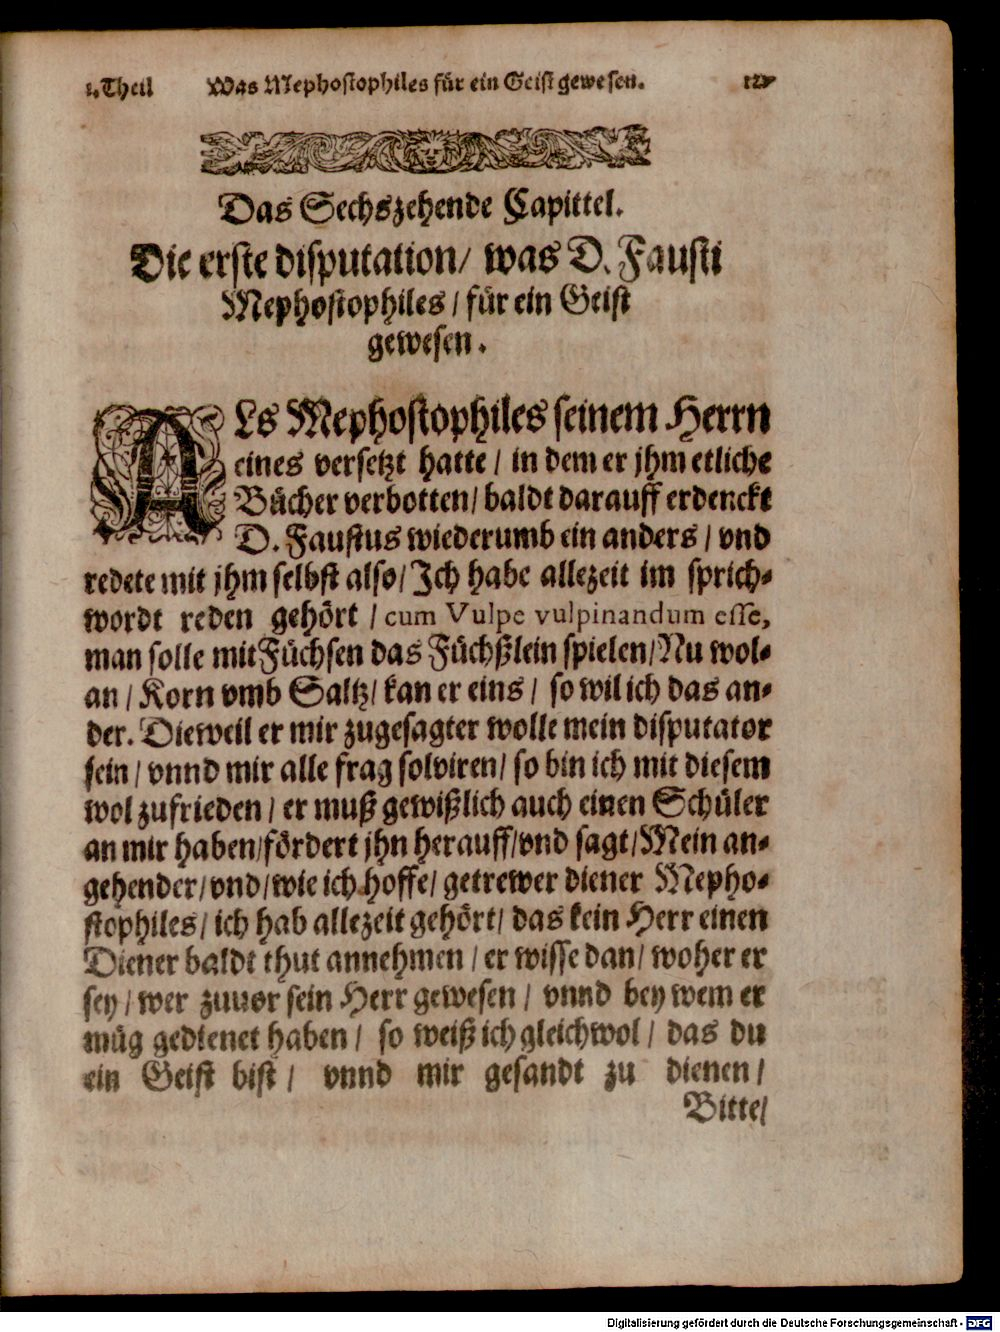 1. Theil Was Mephostophiles für ein Geist gewesen.
Das Sechszehende Capittel.
Die erste disputation/ was D. Fausti
Mephostophiles / für ein Geist
gewesen.
ALs Mephostophiles seinem Herrn
eines versetzt hatte / in dem er jhm etliche
Bücher verbotten / baldt darauff erdenckt
D. Faustus wiederumb ein anders / vnd
redete mit jhm selbst also / Ich habe allezeit im sprich-
wordt reden gehört / cum Vulpe vulpinandum esse,
man solle mit Füchsen das Füchßlein spielen / Nu wol-
an / Korn vmb Saltz / kan er eins / so wil ich das an-
der. Dieweil er mir zugesagter wolle mein disputator
sein / vnnd mir alle frag solviren / so bin ich mit diesem
wol zufrieden / er muß gewißlich auch einen Schüler
an mir haben / fördert jhn herauff / vnd sagt / Mein an-
gehender / vnd / wie ich hoffe / getrewer diener Mepho-
stophiles / ich hab allezeit gehört / das kein Herr einen
Diener baldt thut annehmen / er wisse dan / woher er
sey / wer zuuor sein Herr gewesen / vnnd bey wem er
müg gedienet haben / so weiß ich gleichwol / das du
ein Geist bist / vnnd mir gesandt zu dienen /
Bitte /
Digitalisierung gefördert durch die Deutsche Forschungsgemeinschaft - DFG